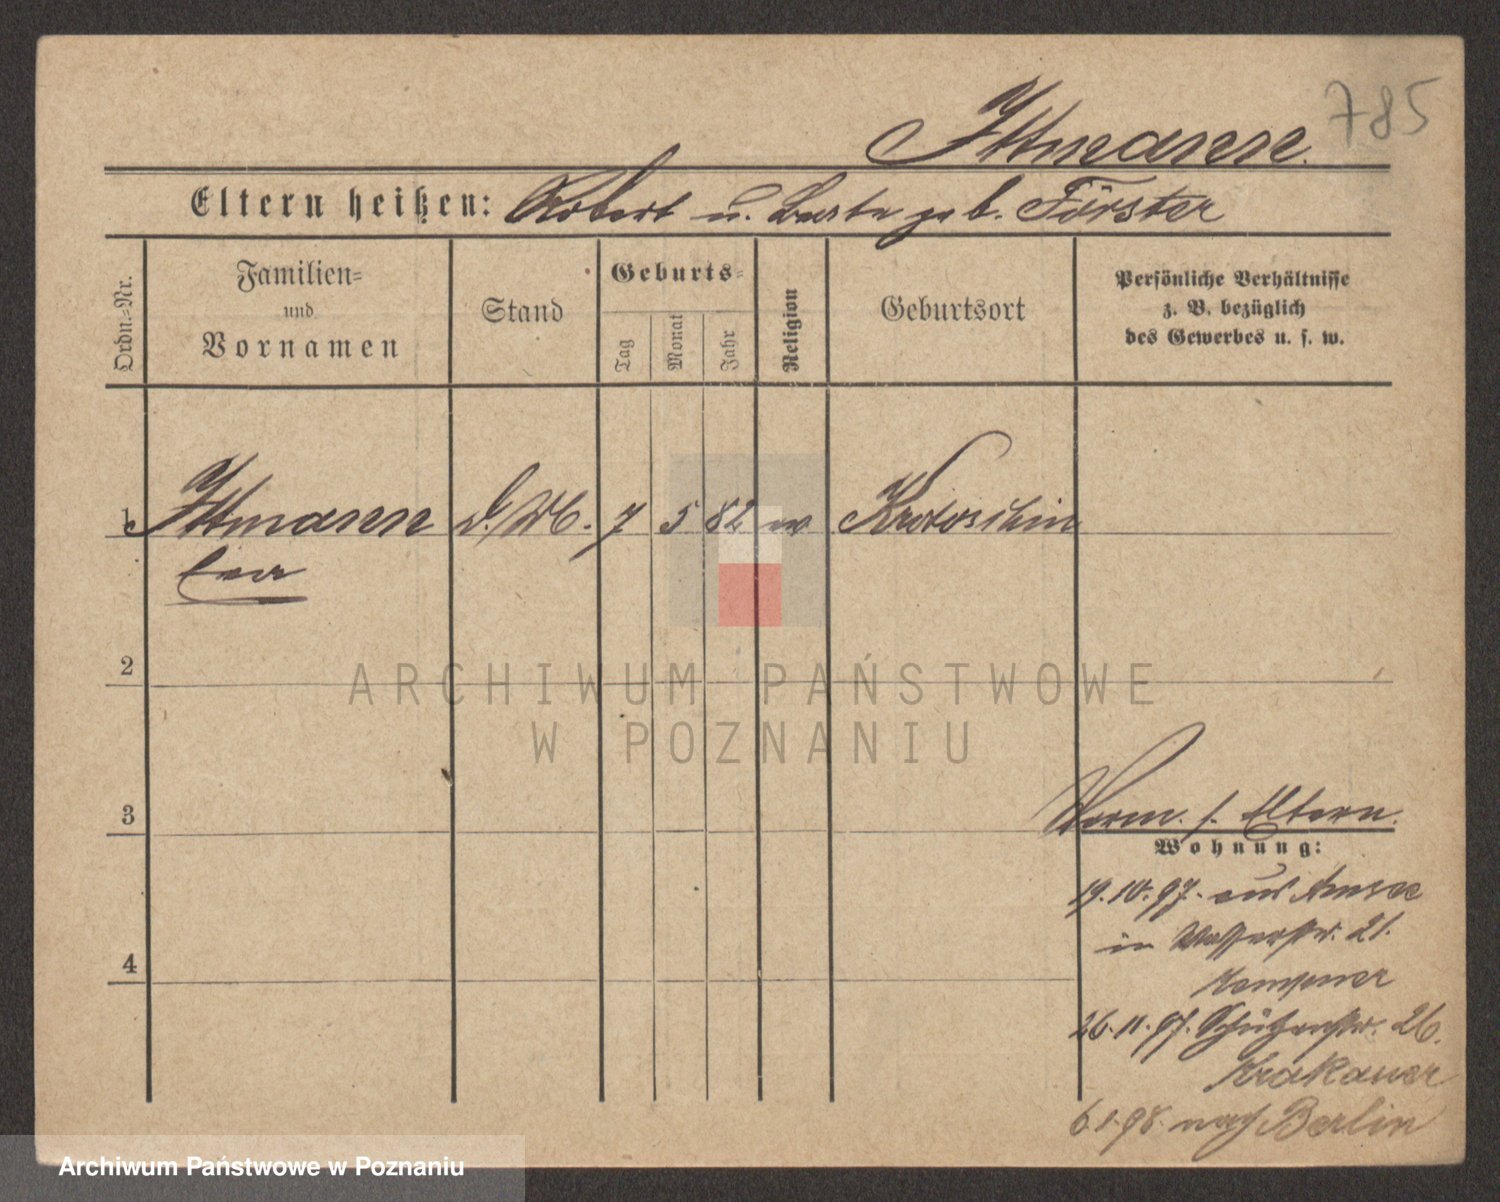 785
Ittmann.
Eltern heißen: Robert u. Berta geb. Förster
Ordn.=Nr.
Familien=
und
Vornamen
Stand
Geburts=
Tag
Monat
Jahr
Religion
Geburtsort
Persönliche Verhältnisse
z. B. bezüglich
des Gewerbes u. s. w.
1 Ittmann D.M. 7 5 82 Krotoschin
2
3
4
Verm. s. Eltern.
Wohnung:
19.10.97. aus Amsee
in Wasserstr. 21.
Kempner
26.11.97. Schützenstr. 26.
Krakauer
6.1.98. nach Berlin
ARCHIWUM PAŃSTWOWE
W POZNANIU
Archiwum Państwowe w Poznaniu